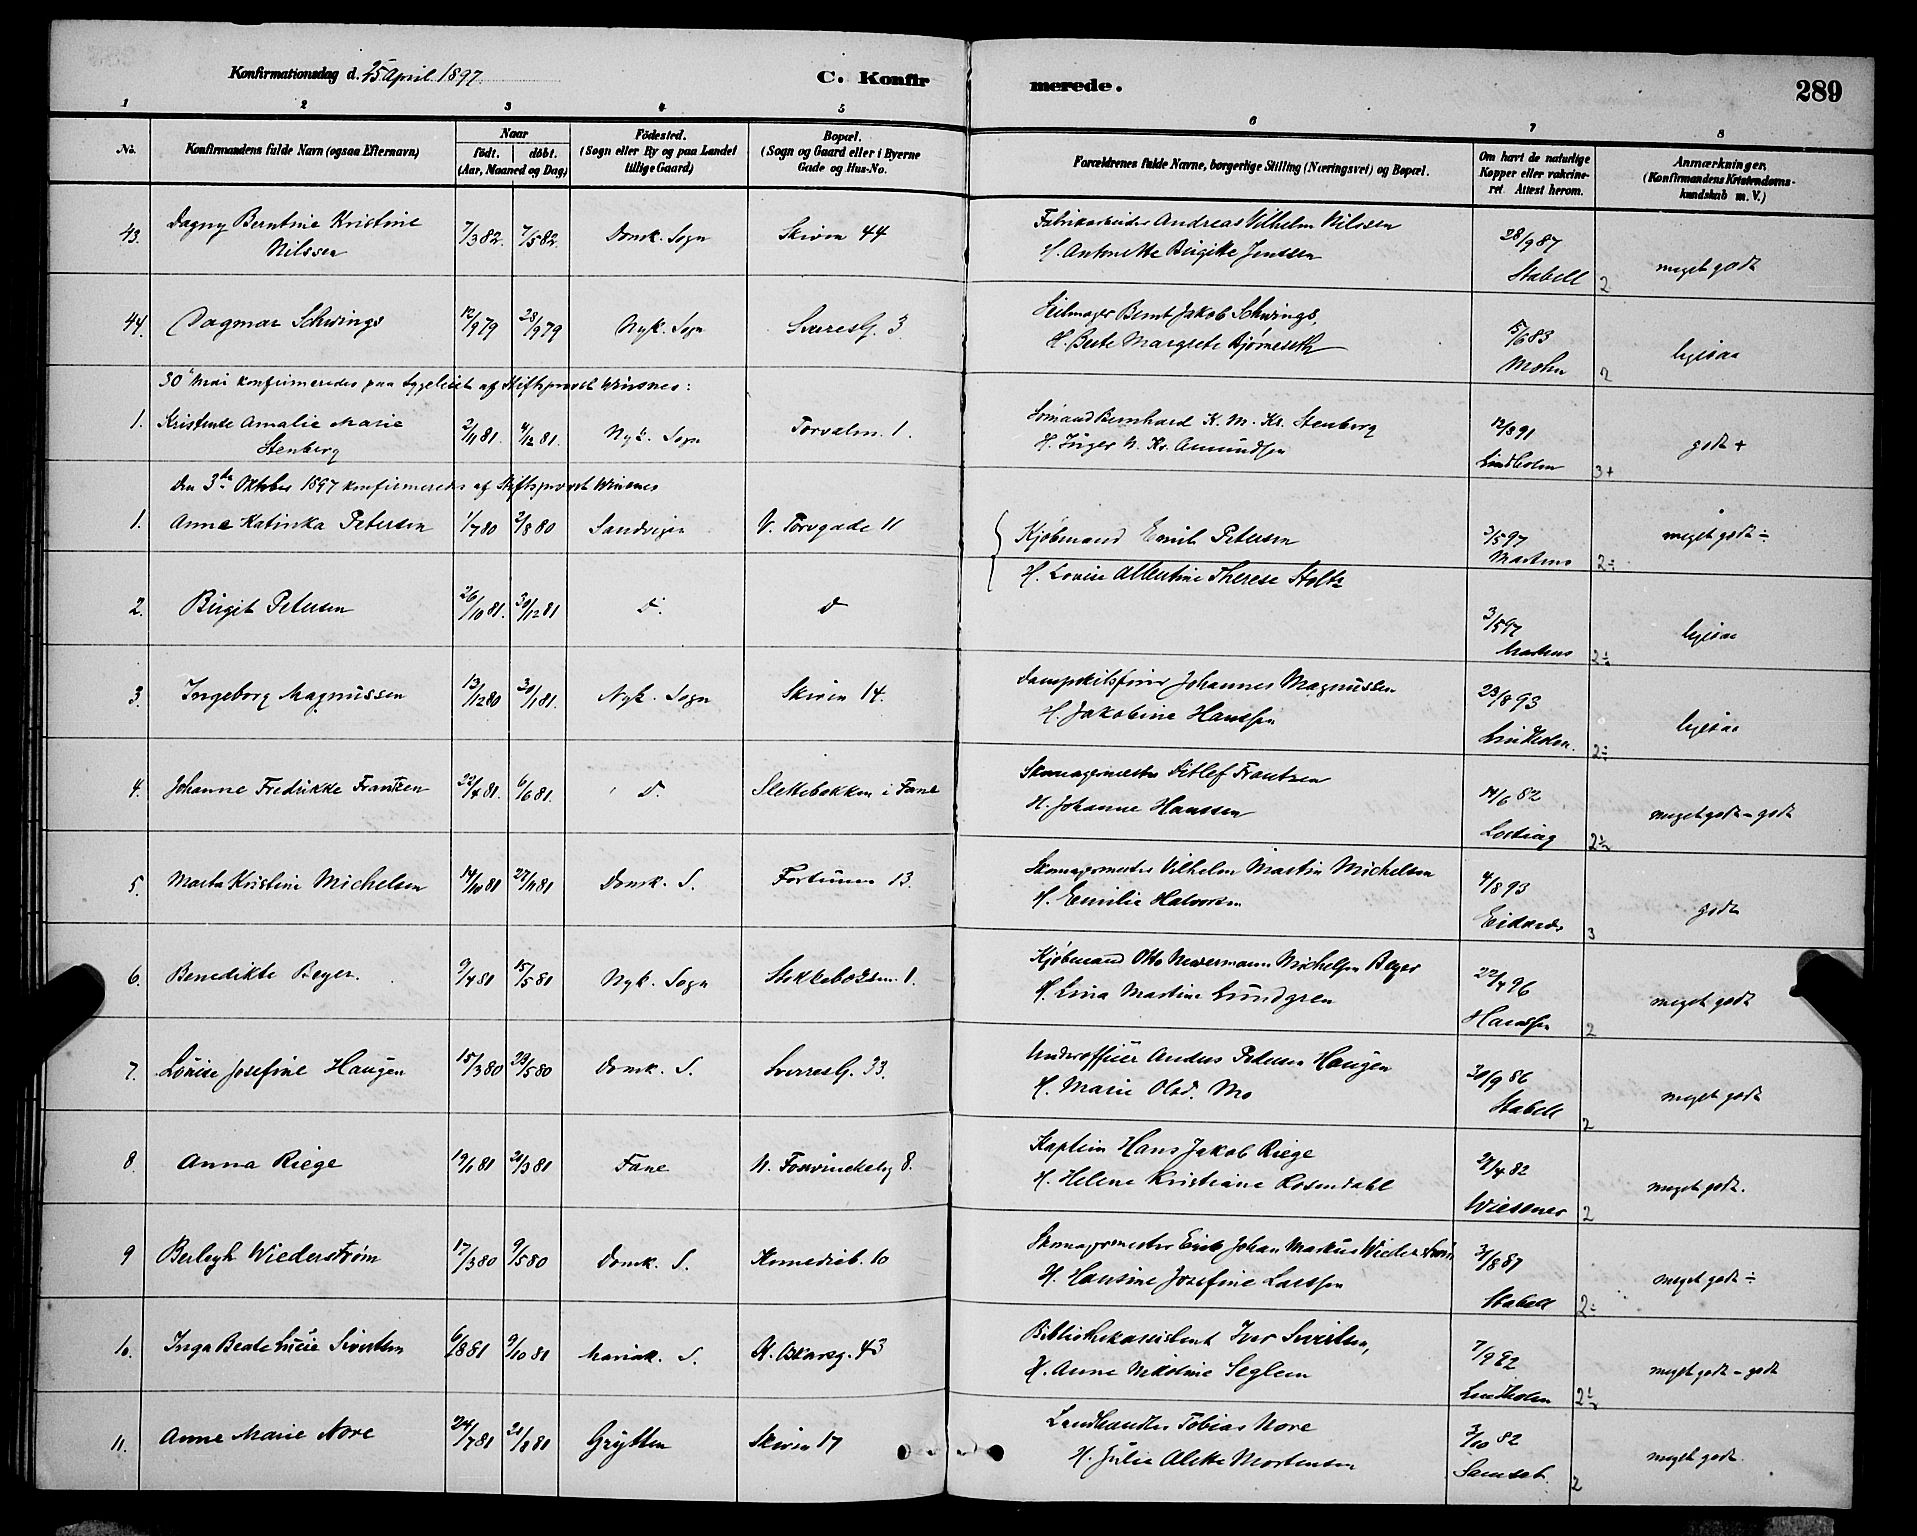 Konfirmationsdag d. 25 April 1897.
C. Konfirmerede.
289
1 2 3 4 5 6 7 8
No.
Konfirmandens fulde Navn (ogsaa Efternavn)
Naar
födt. döbt.
(Aar, Maaned og Dag)
Födested.
(Sogn eller By og paa Landet
tillige Gaard)
Bopæl.
(Sogn og Gaard eller i Byerne
Gade og Hus-No.
Forældrenes fulde Navne, borgerlige Stilling (Næringsvei) og Bopæl.
Om havt de naturlige
Kopper eller vakcine-
ret. Attest herom.
Anmærkninger,
(Konfirmandens Kristendoms-
kundskab m. V.)
43. Dagny Berntine Kristine
Nilssen
7/3 82. 7/5 82. Domk. Sogn Skiven 44
Fabrikarbeider Andreas Vilhelm Nilssen
H. Antonette Birgitte Jentsen
28/9 87
Stabell 2 meget godt
44. Dagmar Schwings 12/9 79 28/9 79 Nyk. Sogn SverresG. 3.
Seilmager Bernt Jakob Schwings,
H. Berte Margrete Bjørneseth
15/6 83
Mohn 2 ligesaa
30' Mai konfirmeredes paa sygeleiet af Stiftsprovst Winsnes:
1. Kristense Amalie Marie
Stenberg
2/11 81. 4/12 81. Nyk. Sogn Torvalm. 1.
Sömand Bernhard K. M. Kr. Stenberg
H. Inger N. Kr. Amundsen
12/8 91
Lindholm 3+ godt +
Den 3die Oktober 1897 konfirmeredes af Stiftsprovst Winsnes
1. Anna Katinka Petersen 1/7 80 2/8 80 Sandvigen V. Torvgade 11
Kjöbmand Emil Petersen
H. Lovise Albertine Therese Stoltz
3/5 97
Martens 2÷ meget godt ÷
2. Birgit Petersen 26/10 81. 30/12 81. D. D
3/5 97
Martens 2÷ ligesaa
3. Ingeborg Magnussen 13/12 80 30/1 81. Nyk. Sogn Skiven 14.
Dampskibsförer Johannes Magnussen
H. Jakobine Hanssen
23/8 93
Lindholm. 2÷ ligesaa
4. Johanne Fredrikke Frantzen 22/4 81. 6/6 81. D. Slettebakken i Fane
Skomagermester Ditlef Frantzen
H. Johanne Hanssen
14/6 82
2½ meget godt - godt
5. Marta Kristine Michelsen 14/10 81 27/11 81 Domk. S. Fortunen 13.
Skomagermester Vilhelm Martin Michelsen
H. Emilie Halvorsen
4/8 93
3 godt
6. Benedikte Beyer. 9/4 81 15/5 81 Nyk. Sogn 1.
Kjöbmand Otto Michelsen Beyer
H. Lina Martine Lundgren
22/4 96
Hanssen 2 meget godt
7. Lovise Josefine Haugen 15/3 80 23/5 80 Domk. S. SverresG. 33.
Underofficer Anders Pedersen Haugen
H. Marie Olsd. Mo
30/9 86
Stabell 2 meget godt
8. Anna Riege 19/1 81 20/3 81 Fane N. Forvinckelsg 8.
Kaptein Hans Jakob Riege
H. Helene Kristiane Rosendahl
27/4 82
Wiesener 2 meget godt.
9 Berlegh Wiederström 17/3 80 9/5 80 Domk. S. Komedieb. 10
Skomagermester Erik Johan Markus Wiederström
H. Hansine Josefine Larssen
31/8 87
Stabell 2÷ meget godt ÷
10. Inga Beate Lucie Sivertsen 6/8 81 9/10 81 Mariak. S. N. Oskarsg. 43
Bibliothekassistent Iver Sivertsen,
H. Anne Nikoline Seglem
7/9 82
Lindholm 2½ meget godt - godt
11. Anne Marie Nore 24/7 81 21/8 81 Grytten Skiven 17
Landhandler Tobias Nore
H. Julie Alette Mortensen
3/10 82
2 meget godt.